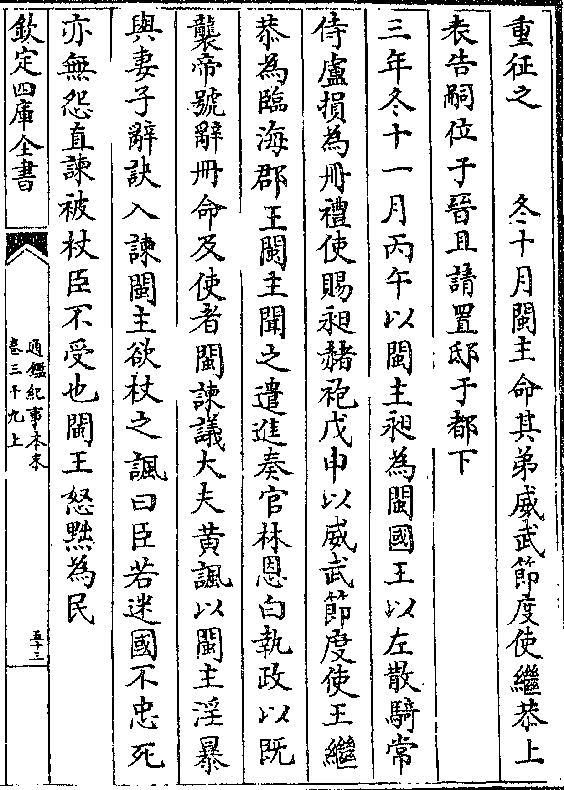 重征之　　冬十月閩主命其弟威武節度使繼恭上
表告嗣位于晉且請置邸于都下
三年冬十一月丙午以閩主昶為閩國王以左散騎常
侍盧損為冊禮使賜昶赭袍戊申以威武節度使王繼
恭為臨海郡王閩主聞之遣進奏官林恩白執政以既
襲帝號辭冊命及使者閩諫議大夫黃諷以閩主淫暴
與妻子辭訣入諫閩主欲杖之諷曰臣若迷國不忠死
亦無怨直諫被杖臣不受也閩王怒黜為民
欽定四庫全書
通鑑紀事本末
卷三十九上
五十三